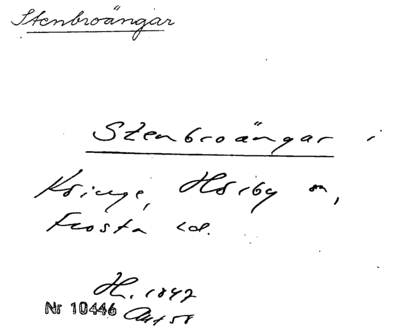 Stenbroängar
Stenbroängar i
Kringe, Hörby sn,
Frosta hd.
H. 1847
Nr 10446 Akt 58